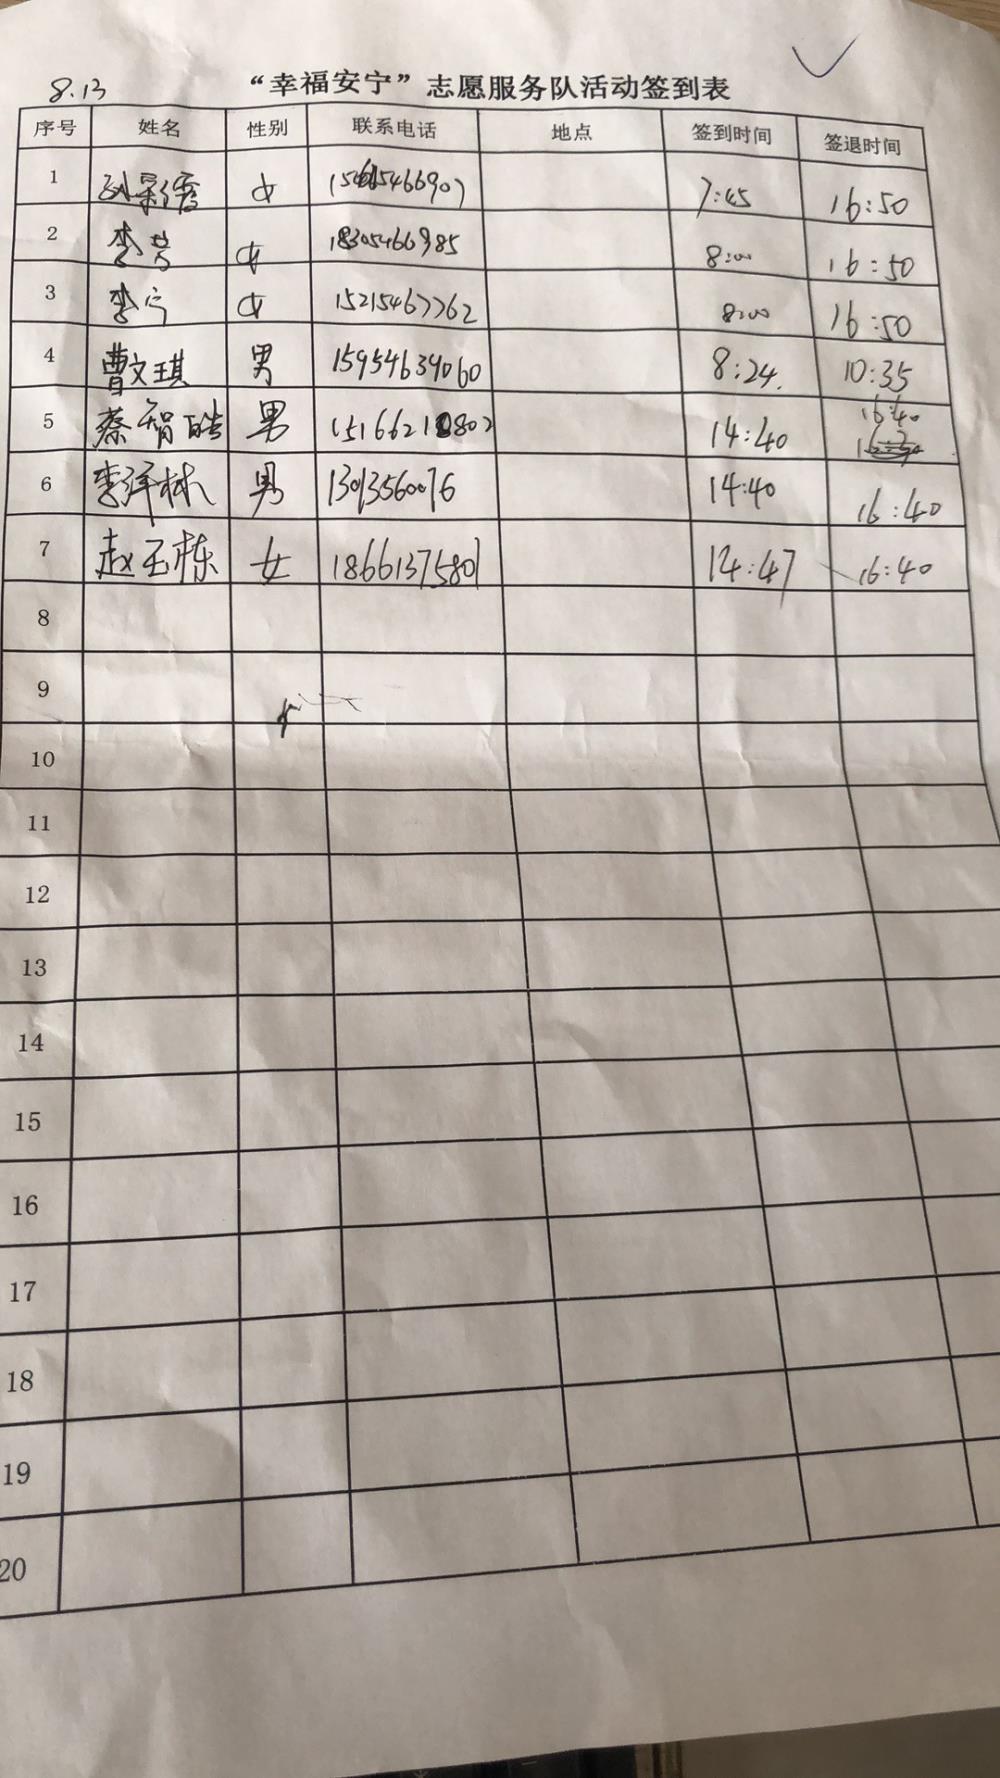 8.13 “幸福安宁”志愿服务队活动签到表
序号 姓名 性别 联系电话 地点 签到时间 签退时间
1 女 7:45 16:50
2 李芳 女 18305466985 8:00 16:50
3 李宁 女 15215467762 8:00 16:50
4 曹文琪 男 15954634060 8:24. 10:35
5 蔡智皓 男 14:40 16:40
6 李洋林 男 13013560076 14:40 16:40
7 赵玉栋 女 18661375801 14:47 16:40
8
9
10
11
12
13
14
15
16
17
18
19
20